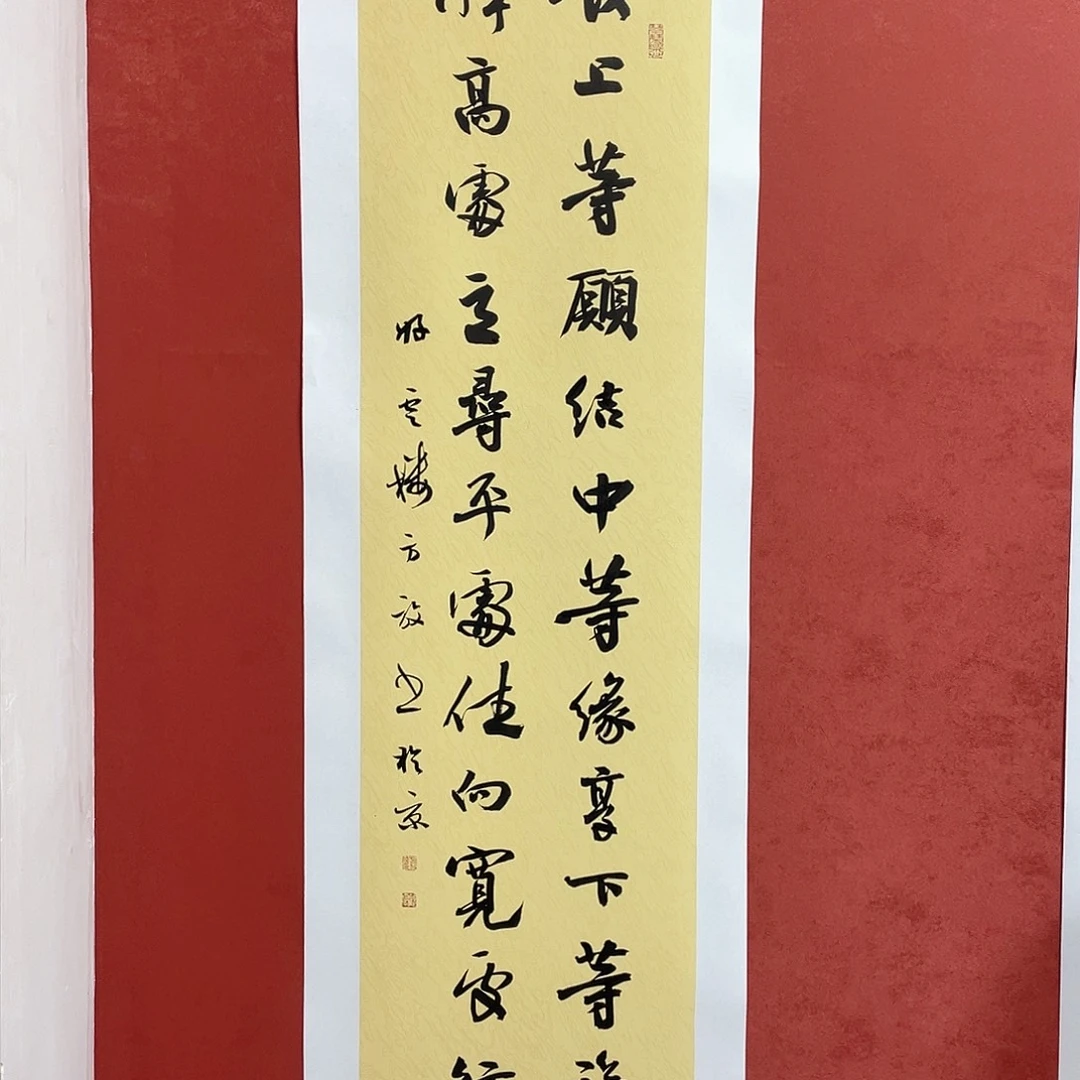 上等願結中等緣享下等
高處立尋平處住向寬處行
方放书於京